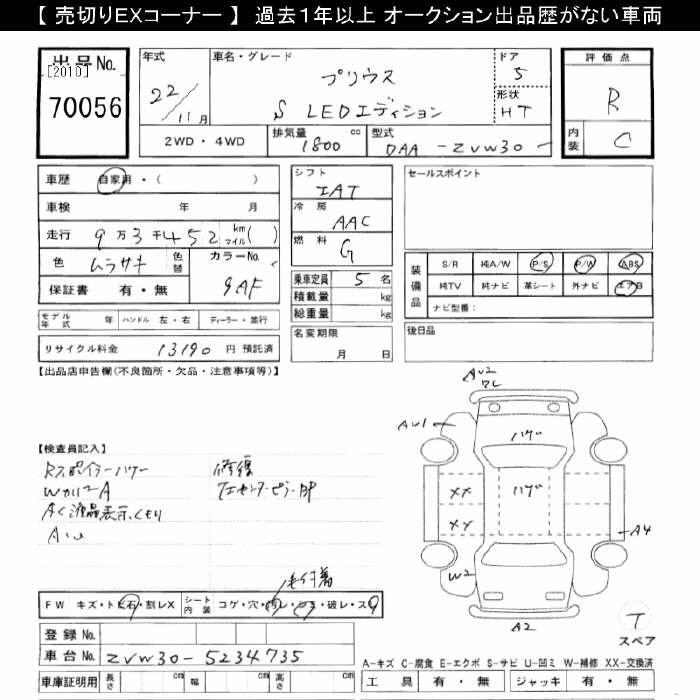 【 売切りEXコーナー 】 過去1年以上 オークション出品歴がない車両
出品No.
[2010]
70056
年式
22/11月
車名・グレード
プリウス
S LEDエディション
ドア
5
形状
HT
2WD・4WD
排気量
1800 cc
型式
DAA-ZVW30-
評価点
R
内装
C
車歴 自家用・( )
車検 年 月
走行 9万3千452 km マイル( )
色 ムラサキ 色替 カラーNo. 9AF
保証書 有・無
モデル年式 年 ハンドル 左・右 ディーラー・並行
リサイクル料金 13190 円 預託済
シフト
IAT
冷房
AAC
燃料
G
乗車定員 5 名
積載量 kg
総重量 kg
名変期限
月 日
セールスポイント
装備品
S/R 純A/W P/S P/W ABS
純TV 純ナビ 革シート 外ナビ エアB
ナビ型番:
後日品
【出品店申告欄(不良箇所・欠品・注意事項等)】
【検査員記入】
Rスポイラーハゲー
AC液晶表示くもり
修復
A42
AU1
ハゲ
ハゲ
XX
XX
A4
W2
A2
T
スペア
FW キズ・トビ石・割レX シート内装 コゲ・穴・汚レ・シミ・破レ・スレ
登録No.
車台No. ZVW30-5234735
車庫証明用 長さ cm 幅 cm 高さ cm
A-キズ C-腐食 E-エクボ S-サビ U-凹ミ W-補修 XX-交換済
工具 有・無 ジャッキ 有・無